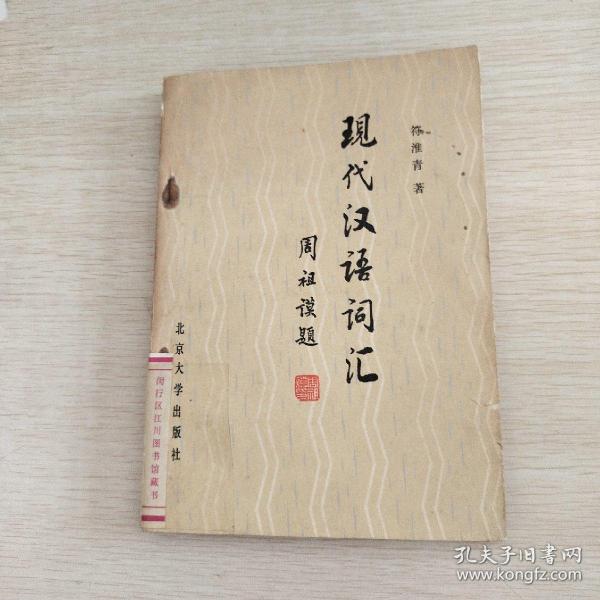 符淮青 著
現代汉语词汇
周祖谟題
北京大学出版社
闵行区江川图书馆藏书
孔夫子旧書网
www.kongfz.com